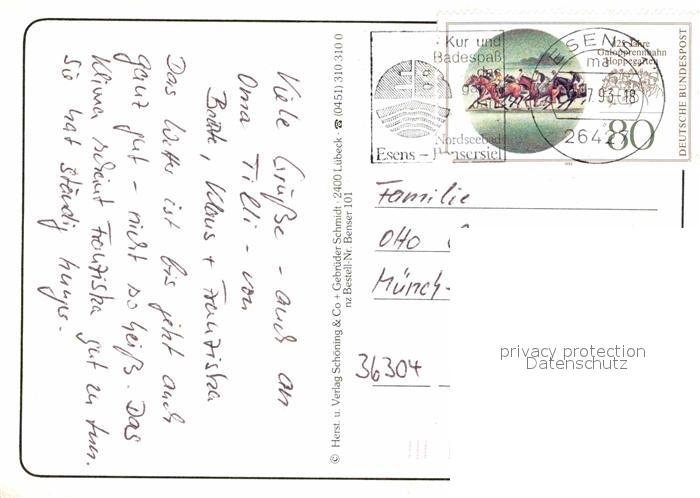 Viele Grüße - auch an
Oma Tilli - von
Beate, Klaus + Franziska
Das Wetter ist bis jetzt auch
ganz gut - nicht so heiß. Das
Klima scheint Franziska gut zu tun.
Sie hat ständig Hunger.
© Herst. u. Verlag Schöning & Co + Gebrüder Schmidt · 2400 Lübeck · ☎ (0451) 310 310 0
nz Bestell-Nr. Benser 101
Kur und
Badespaß
Nordseebad
Esens - Bensersiel
ESENS
7.93-18
2642
125 Jahre
Galopprennbahn
Hoppegarten
80
DEUTSCHE BUNDESPOST
Familie
Otto
Münch-
36304
privacy protection
Datenschutz